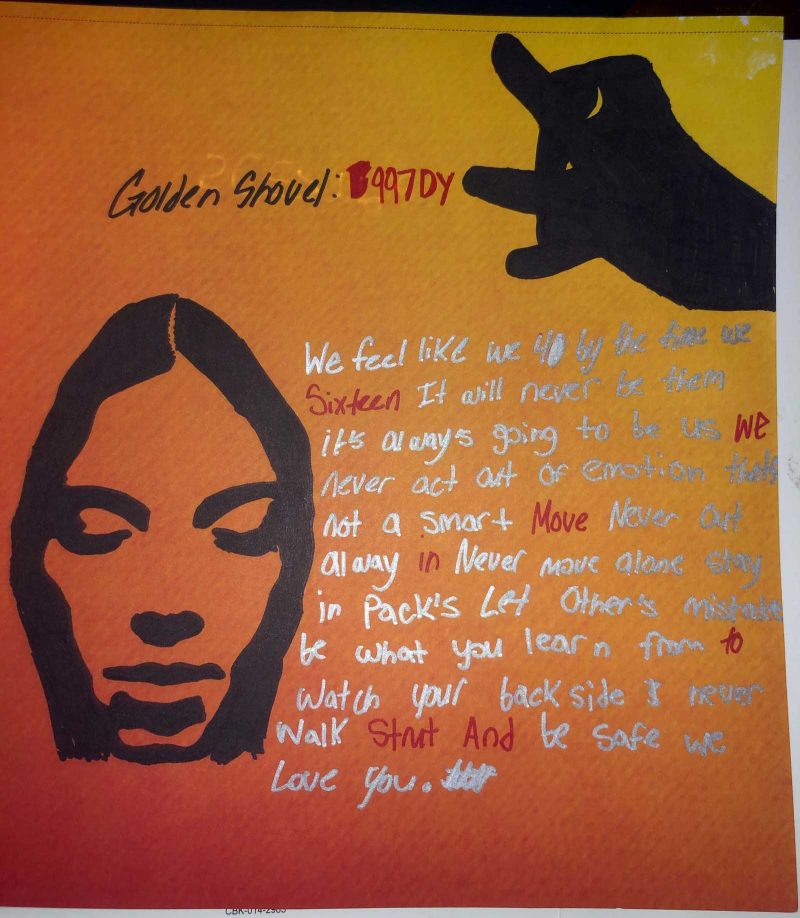 Golden Shovel: 997DY
We feel like we 40 by the time we
Sixteen It will never be them
it's always going to be us we
never act out of emotion thats
not a smart Move Never Out
alway in Never move alone stay
in Pack's Let Other's mistake
be what you learn from to
watch your back side & never
Walk Strut And be safe we
Love you.
CBK-014-2965